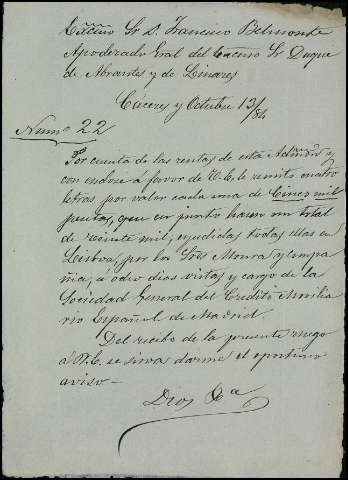 Excmo Sr D. Francisco Belmonte
Apoderado Gral del Excmo Sr Duque
de Abrantes y de Linares
Cáceres y Octubre 13/84
Num° 22
Por cuenta de las rentas de esta Admon y
con endoso á favor de V.E. le remito cuatro
letras por valor cada una de Cinco mil
pesetas, que en junto hacen un total
de veinte mil, espedidas todas ellas en
Lisboa, por los Sres Moura y Compa
ñia, á ocho dias vista y cargo de la
Sociedad General del Credito Movilia
rio Español de Madrid.
Del recibo de la presente ruego
á V.E. se sirva darme el oportuno
aviso—
Dios &a